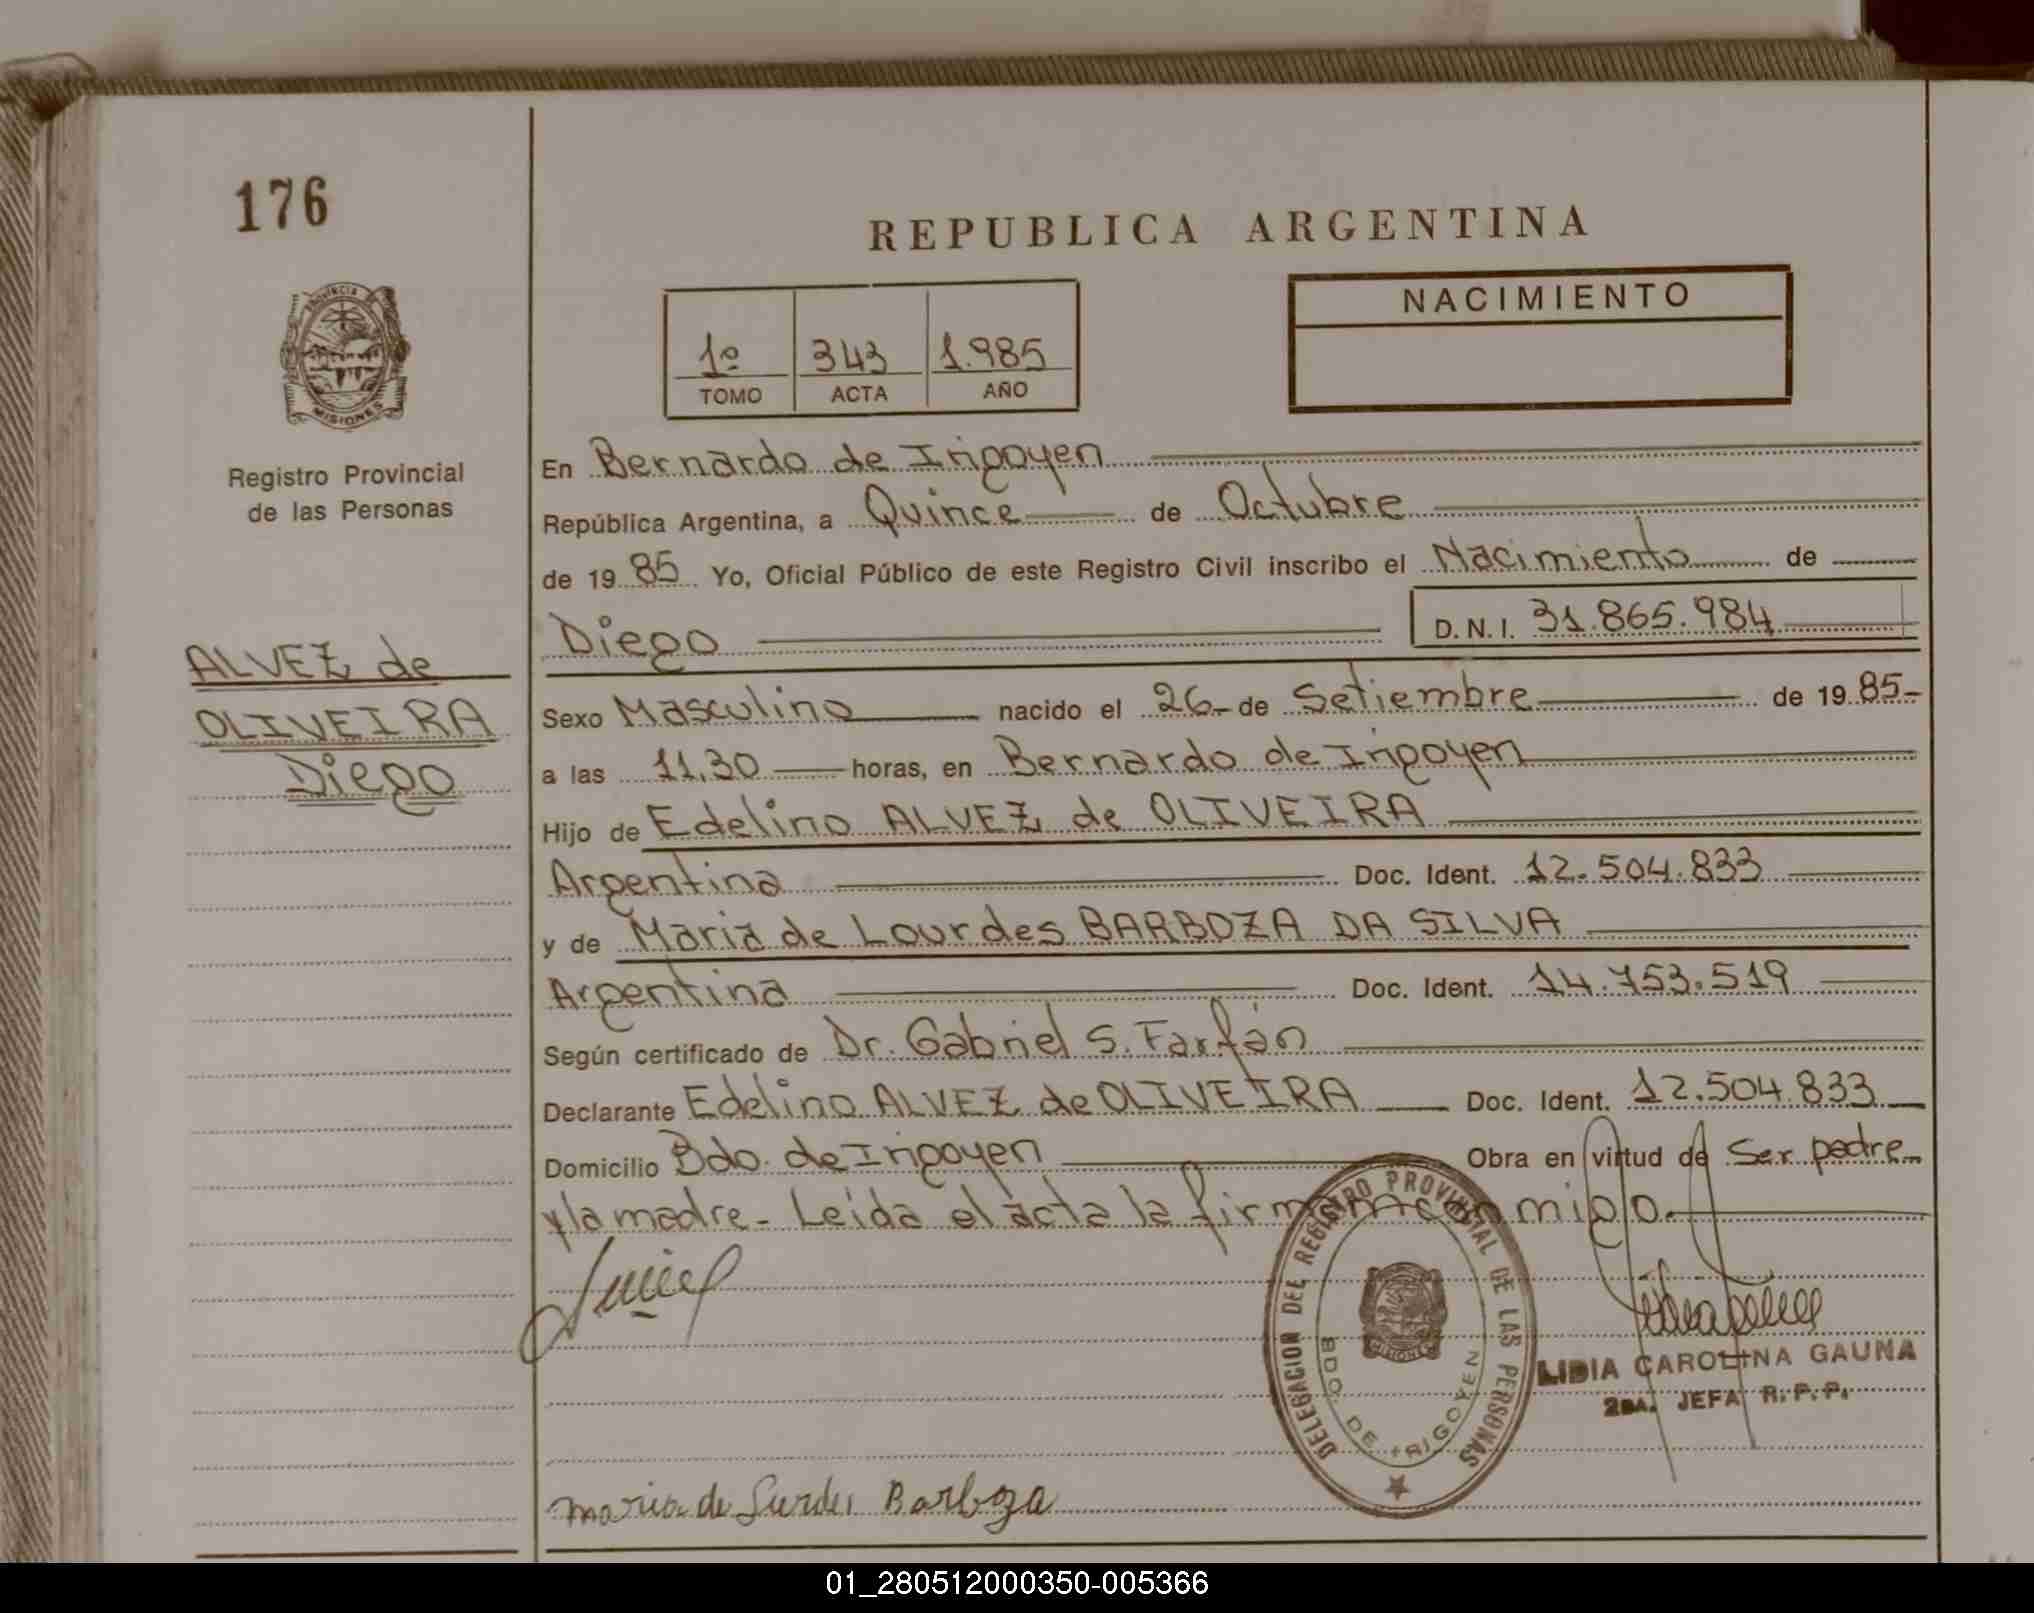 176
REPUBLICA ARGENTINA
PROVINCIA
MISIONES
Registro Provincial
de las Personas
1º 343 1.985
TOMO ACTA AÑO
NACIMIENTO
En Bernardo de Irigoyen
República Argentina, a Quince de Octubre
de 19 85 Yo, Oficial Público de este Registro Civil inscribo el Nacimiento de
Diego D.N.I. 31.865.984
ALVEZ de
OLIVEIRA
Diego
Sexo Masculino nacido el 26 de Setiembre de 19 85-
a las 11,30 horas, en Bernardo de Irigoyen
Hijo de Edelino ALVEZ de OLIVEIRA
Argentina Doc. Ident. 12.504.833
y de Maria de Lourdes BARBOZA DA SILVA
Argentina Doc. Ident. 14.753.519
Según certificado de Dr. Gabriel S. Farfán
Declarante Edelino ALVEZ de OLIVEIRA Doc. Ident. 12.504.833
Domicilio Bdo. de Irigoyen Obra en virtud de Ser padre
y la madre - Leida el acta la firman conmigo.
DELEGACION DEL REGISTRO PROVINCIAL DE LAS PERSONAS
MISIONES
BDO. DE IRIGOYEN
LIDIA CAROLINA GAUNA
2DA. JEFA R.P.P.
maria de Lurdes Barboza
01_280512000350-005366